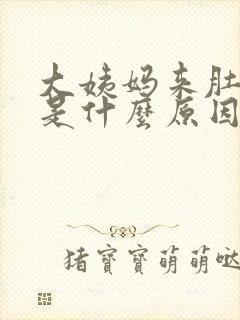 大姨妈来肚
是什麼原因
猪寶寶萌萌哒